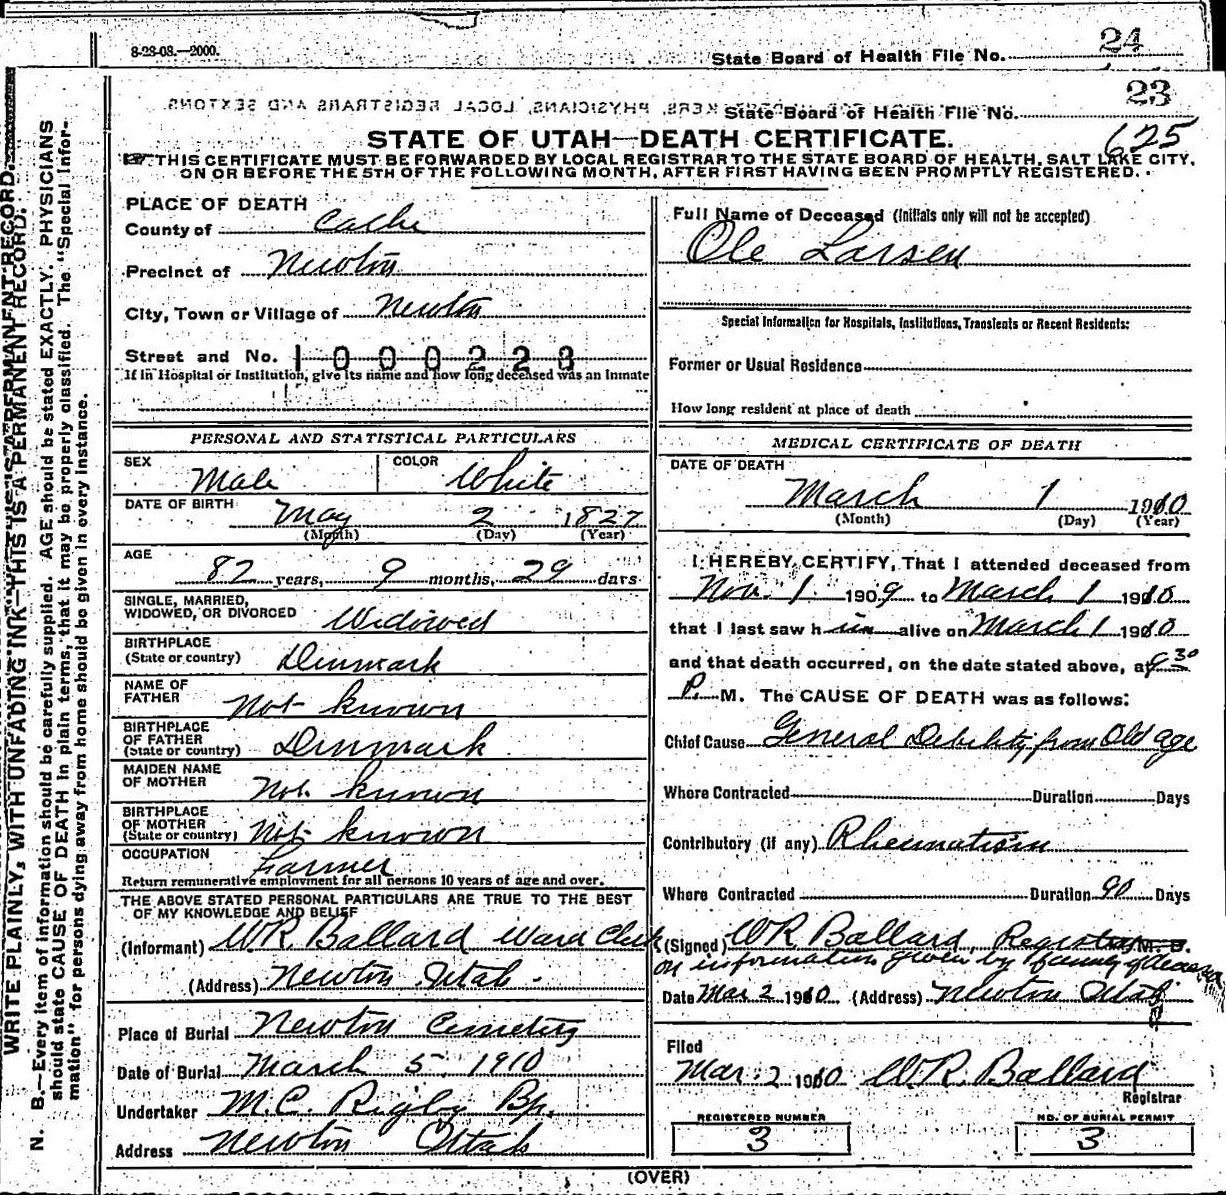 8-23-08.—2000.
State Board of Health File No. 24
State Board of Health File No. 23
625
STATE OF UTAH—DEATH CERTIFICATE.
THIS CERTIFICATE MUST BE FORWARDED BY LOCAL REGISTRAR TO THE STATE BOARD OF HEALTH, SALT LAKE CITY,
ON OR BEFORE THE 5TH OF THE FOLLOWING MONTH, AFTER FIRST HAVING BEEN PROMPTLY REGISTERED.
WRITE PLAINLY, WITH UNFADING INK—THIS IS A PERMANENT RECORD.
N. B.—Every item of information should be carefully supplied. AGE should be stated EXACTLY. PHYSICIANS
should state CAUSE OF DEATH in plain terms, that it may be properly classified. The "Special Infor-
mation" for persons dying away from home should be given in every instance.
PLACE OF DEATH
County of Cache
Precinct of Newton
City, Town or Village of Newton
Street and No. 1000223
If in Hospital or Institution, give its name and how long deceased was an Inmate
PERSONAL AND STATISTICAL PARTICULARS
SEX Male COLOR White
DATE OF BIRTH May 2 1827
(Month) (Day) (Year)
AGE 82 years, 9 months, 29 days
SINGLE, MARRIED,
WIDOWED, OR DIVORCED Widowed
BIRTHPLACE
(State or country) Denmark
NAME OF
FATHER Not known
BIRTHPLACE
OF FATHER
(State or country) Denmark
MAIDEN NAME
OF MOTHER Not known
BIRTHPLACE
OF MOTHER
(State or country) Not known
OCCUPATION Farmer
Return remunerative employment for all persons 10 years of age and over.
THE ABOVE STATED PERSONAL PARTICULARS ARE TRUE TO THE BEST
OF MY KNOWLEDGE AND BELIEF
(Informant) W R Ballard Ward Clerk
(Address) Newton Utah.
Place of Burial Newton Cemetery
Date of Burial March 5, 1910
Undertaker M. C. Rigby Bp.
Address Newton Utah
Full Name of Deceased (Initials only will not be accepted)
Ole Larsen
Special Information for Hospitals, Institutions, Transients or Recent Residents:
Former or Usual Residence
How long resident at place of death
MEDICAL CERTIFICATE OF DEATH
DATE OF DEATH
March 1 1910
(Month) (Day) (Year)
I HEREBY CERTIFY, That I attended deceased from
Nov. 1 1909 to March 1 1910
that I last saw him alive on March 1 1910
and that death occurred, on the date stated above, at 9 30
P. M. The CAUSE OF DEATH was as follows:
Chief Cause General Debility from Old age
Where Contracted Duration Days
Contributory (if any) Rheumatism
Where Contracted Duration 90 Days
(Signed) W R Ballard, Registrar M. D.
on information given by family of deceased
Date Mar 2 1910 (Address) Newton Utah
Filed
Mar. 2 1910 W. R. Ballard
Registrar
REGISTERED NUMBER
3
NO. OF BURIAL PERMIT
3
(OVER)